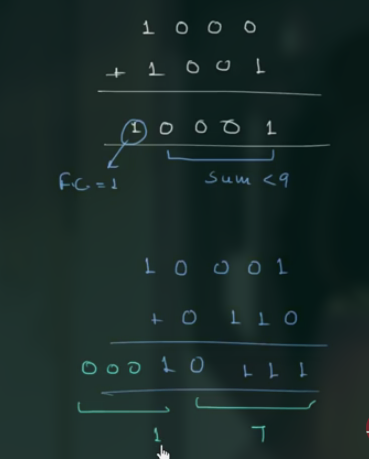 1 0 0 0
+ 1 0 0 1
1 0 0 0 1
F.C = 1 Sum < 9
1 0 0 0 1
+ 0 1 1 0
0 0 0 1 0 1 1 1
1 7